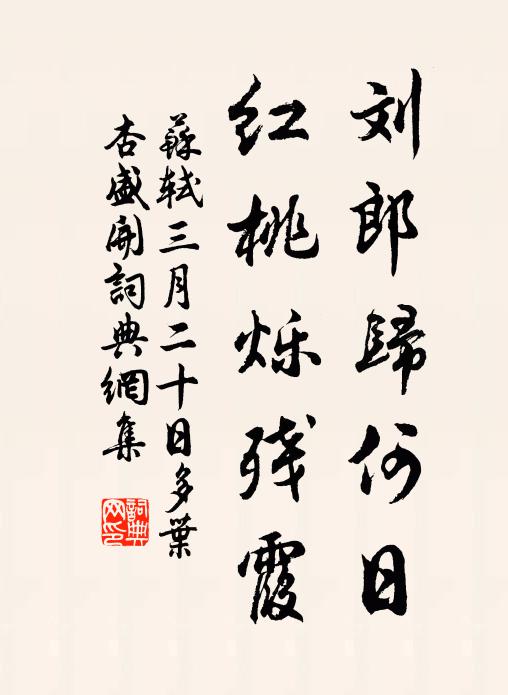 刘郎歸何日
红桃烁残霞
蘇軾三月二十日多葉
杏盛開詞典網集
詞典网印